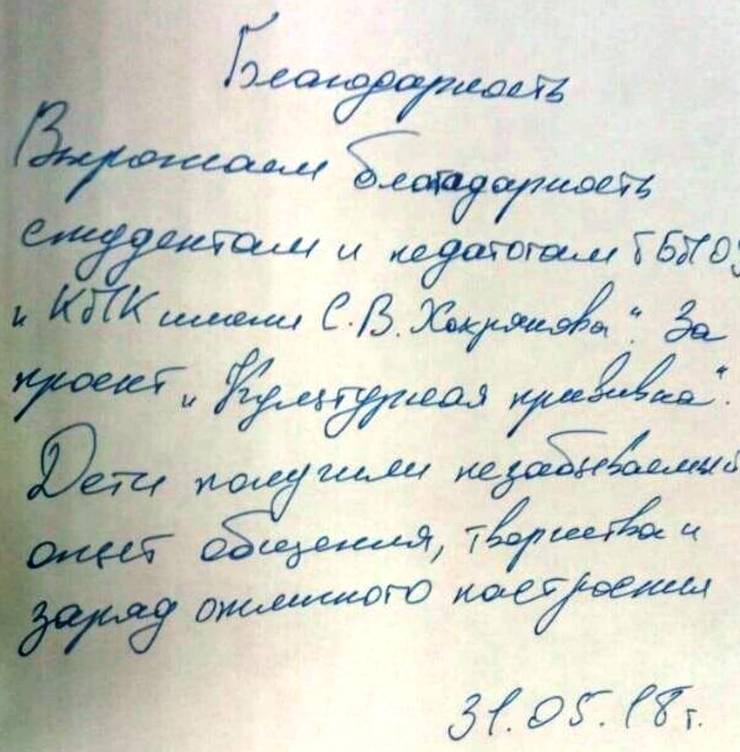 Благодарность
Выражаем благодарность
студентам и педагогам ГБПОУ
„КПК имени С.В. Хохрякова“. За
проект „Культурная прививка“.
Дети получили незабываемый
опыт общения, творчества и
заряд отличного настроения
31.05.18г.